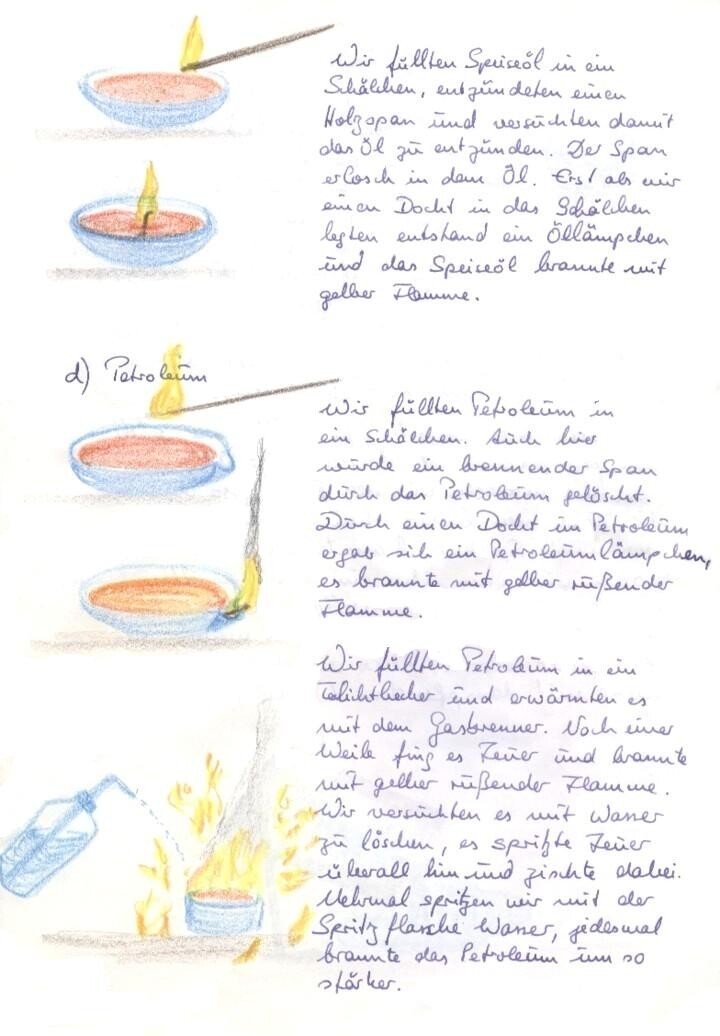 Wir füllten Speiseöl in ein
Schälchen, entzündeten einen
Holzspan und versuchten damit
das Öl zu entzünden. Der Span
erlosch in dem Öl. Erst als wir
einen Docht in das Schälchen
legten entstand ein Öllämpchen
und das Speiseöl brannte mit
gelber Flamme.
d) Petroleum
Wir füllten Petroleum in
ein Schälchen. Auch hier
würde ein brennender Span
durch das Petroleum gelöscht.
Durch einen Docht im Petroleum
ergab sich ein Petroleumlämpchen,
es brannte mit gelber rußender
Flamme.
Wir füllten Petroleum in ein
Telichtbecher und erwärmten es
mit dem Gasbrenner. Nach einer
Weile fing es Feuer und brannte
mit gelber rußender Flamme.
Wir versuchten es mit Wasser
zu löschen, es spritzte Feuer
überall hin und zischte dabei.
Mehrmal spritzen wir mit der
Spritzflasche Wasser, jedesmal
brannte das Petroleum um so
stärker.